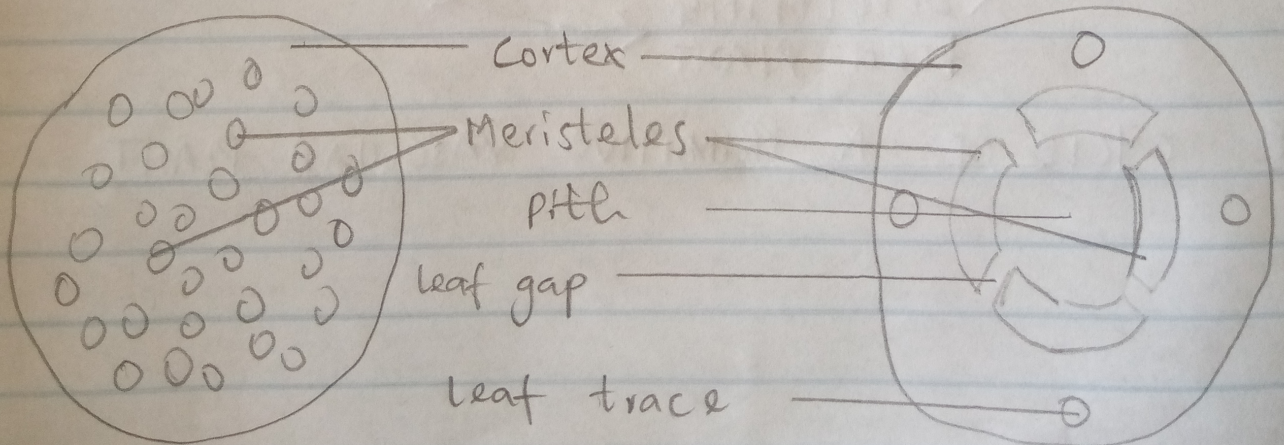 Cortex
Meristeles
pith
leaf gap
leaf trace